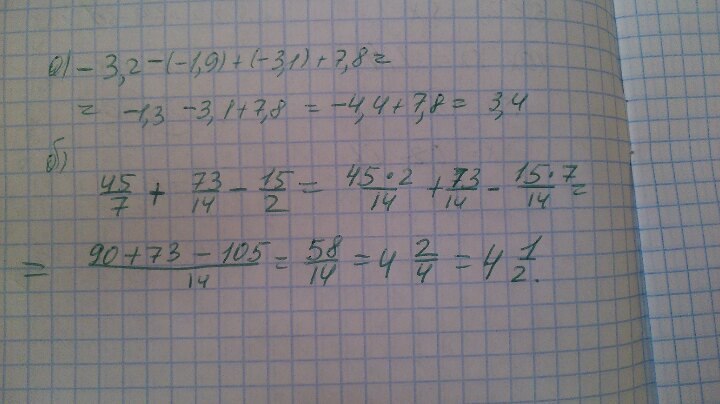 а) - 3,2 - (-1,9) + (-3,1) + 7,8 =
= -1,3 - 3,1 + 7,8 = -4,4 + 7,8 = 3,4
б)
45/7 + 73/14 - 15/2 = 45·2/14 + 73/14 - 15·7/14 =
= 90 + 73 - 105/14 = 58/14 = 4 2/4 = 4 1/2.